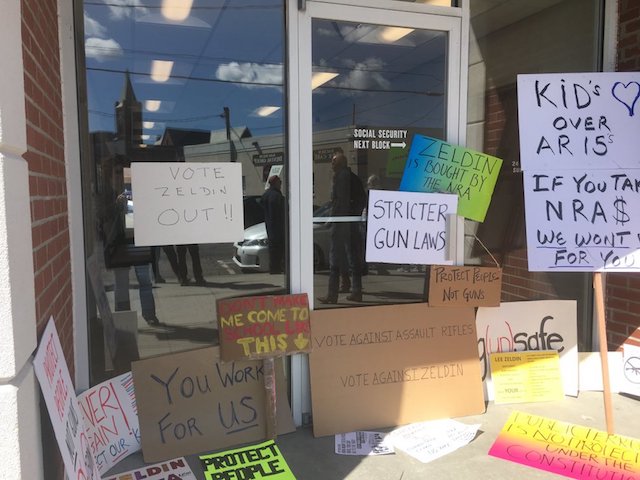 SOCIAL SECURITY
NEXT BLOCK
VOTE
ZELDIN
OUT !!
ZELDIN
IS BOUGHT BY
THE NRA
STRICTER
GUN LAWS
KID'S
OVER
AR 15s
IF YOU TAK
NRA$
WE WONT V
FOR YOU
PROTECT PEOPLE
NOT GUNS
DON'T MAKE
ME COME TO
SCHOOL LIKE
THIS
VOTE AGAINST ASSAULT RIFLES
VOTE AGAINST ZELDIN
YOU WORK
FOR US
(gun)safe
LEE ZELDIN
PROTECT
PEOPLE
ZELDIN
IS NOT PROTECT
UNDER THE
CONSTITUTI